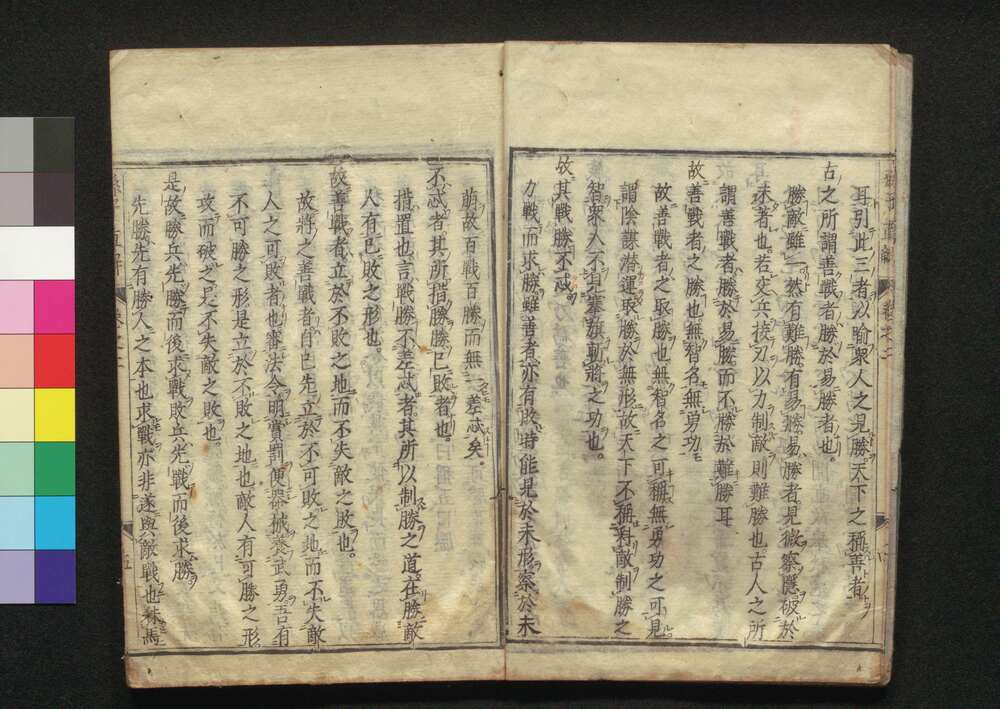 耳引此三者以喩衆人之見勝天下之稱善者
古之所謂善戰者勝於易勝者也
勝敵雖一然有難勝有易勝易勝者見微察隱破於
未著也若交兵接刃以力制敵則難勝也古人之所
謂善戰者勝於易勝而不勝於難勝耳
故善戰者之勝也無智名無勇功
故善戰者之取勝也無智名之可稱無勇功之可見
謂陰謀潜運取勝於無形故天下不稱料敵制勝之
智衆人不見搴旗斬將之功也
故其戰勝不忒
力戰而求勝雖善者亦有敗時能見於未形察於未
萠故百戰百勝而無一差忒矣
不忒者其所措勝勝已敗者也
措置也言戰勝不差忒者其所以制勝之道在勝敵
人有已敗之形也
故善戰者立於不敗之地而不失敵之敗也
故將之善戰者自已先立於不可敗之地而不失敵
人之可敗者也審法令明賞罰便器械養武勇吾有
不可勝之形是立於不敗之地也敵人有可勝之形
攻而破之是不失敵之敗也
是故勝兵先勝而後求戰敗兵先戰而後求勝
先勝先有勝人之本也求戰亦非遂與敵戰也秣馬